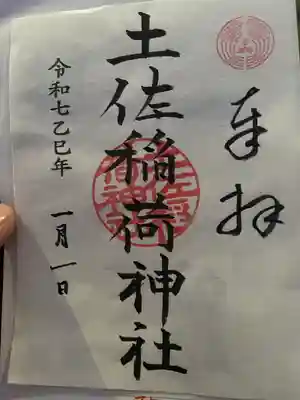 奉拝
土佐稲荷神社
令和七乙巳年 一月一日